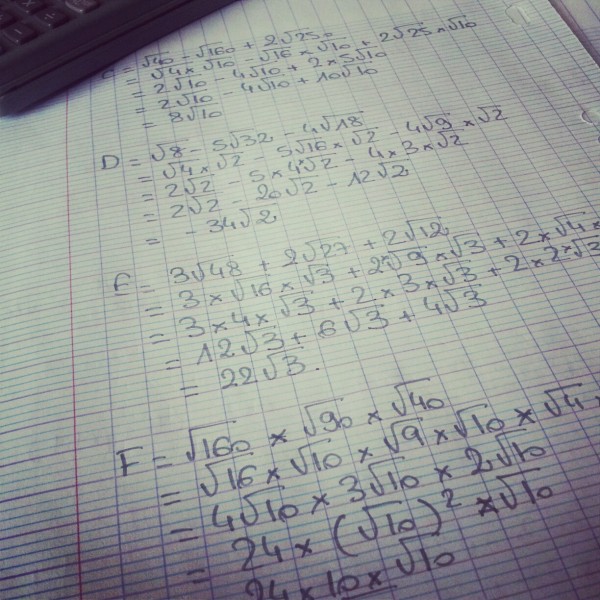 = √40 - √160 + 2√250
= √4 × √10 - √16 × √10 + 2√25 × √10
= 2√10 - 4√10 + 2 × 5√10
= 2√10 - 4√10 + 10√10
= 8√10
D = √8 - 5√32 - 4√18
= √4 × √2 - 5√16 × √2 - 4√9 × √2
= 2√2 - 5 × 4√2 - 4 × 3 × √2
= 2√2 - 20√2 - 12√2
= - 34√2
E = 3√48 + 2√27 + 2√12
= 3 × √16 × √3 + 2√9 × √3 + 2 × √4 ×
= 3 × 4 × √3 + 2 × 3 × √3 + 2 × 2 × √3
= 12√3 + 6√3 + 4√3
= 22√3.
F = √160 × √90 × √40
= √16 × √10 × √9 × √10 × √4 ×
= 4√10 × 3√10 × 2√10
= 24 × (√10)² × √10
24 × 10 × √10